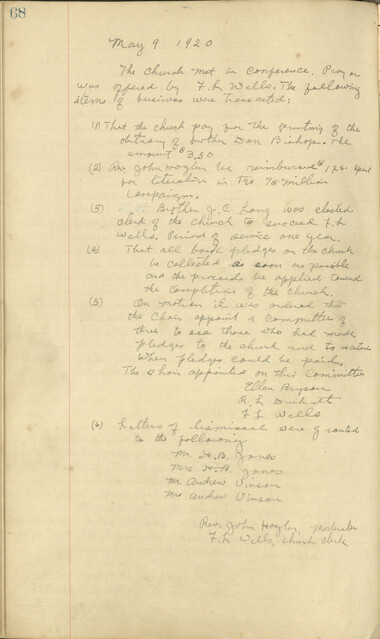 68
May 9 1920
The Church met in conference. Prayer
was offered by F. L. Wells. The following
items of business were transacted:
(1) That the church pay for the printing of the
obituary of brother Dan Bishop. The
amount $3.50
(2) Rev. John Hogler be reimbursed
for literature in The 75 million
campaign.
(3) Brother J. C. Long was elected
clerk of the church to succeed F. L.
Wells. Period of service one year.
(4) That all back pledges on the church
be collected as soon as possible
and the proceeds be applied toward
the completion of the church.
(5) On motion it was ordered that
the Chair appoint a committee of
three to see those who had made
pledges to the church and to
when pledges could be paid.
The chair appointed on this committee
Ellen Bryson
R. L.
F. L. Wells
(6) Letters of dismissal were granted
to the following
Mr. H. B. Jones
Mrs H. B. Jones
Mr. Andrew Vinson
Mrs Andrew Vinson
Rev. John Hogler, Moderator
F. L. Wells, church clerk